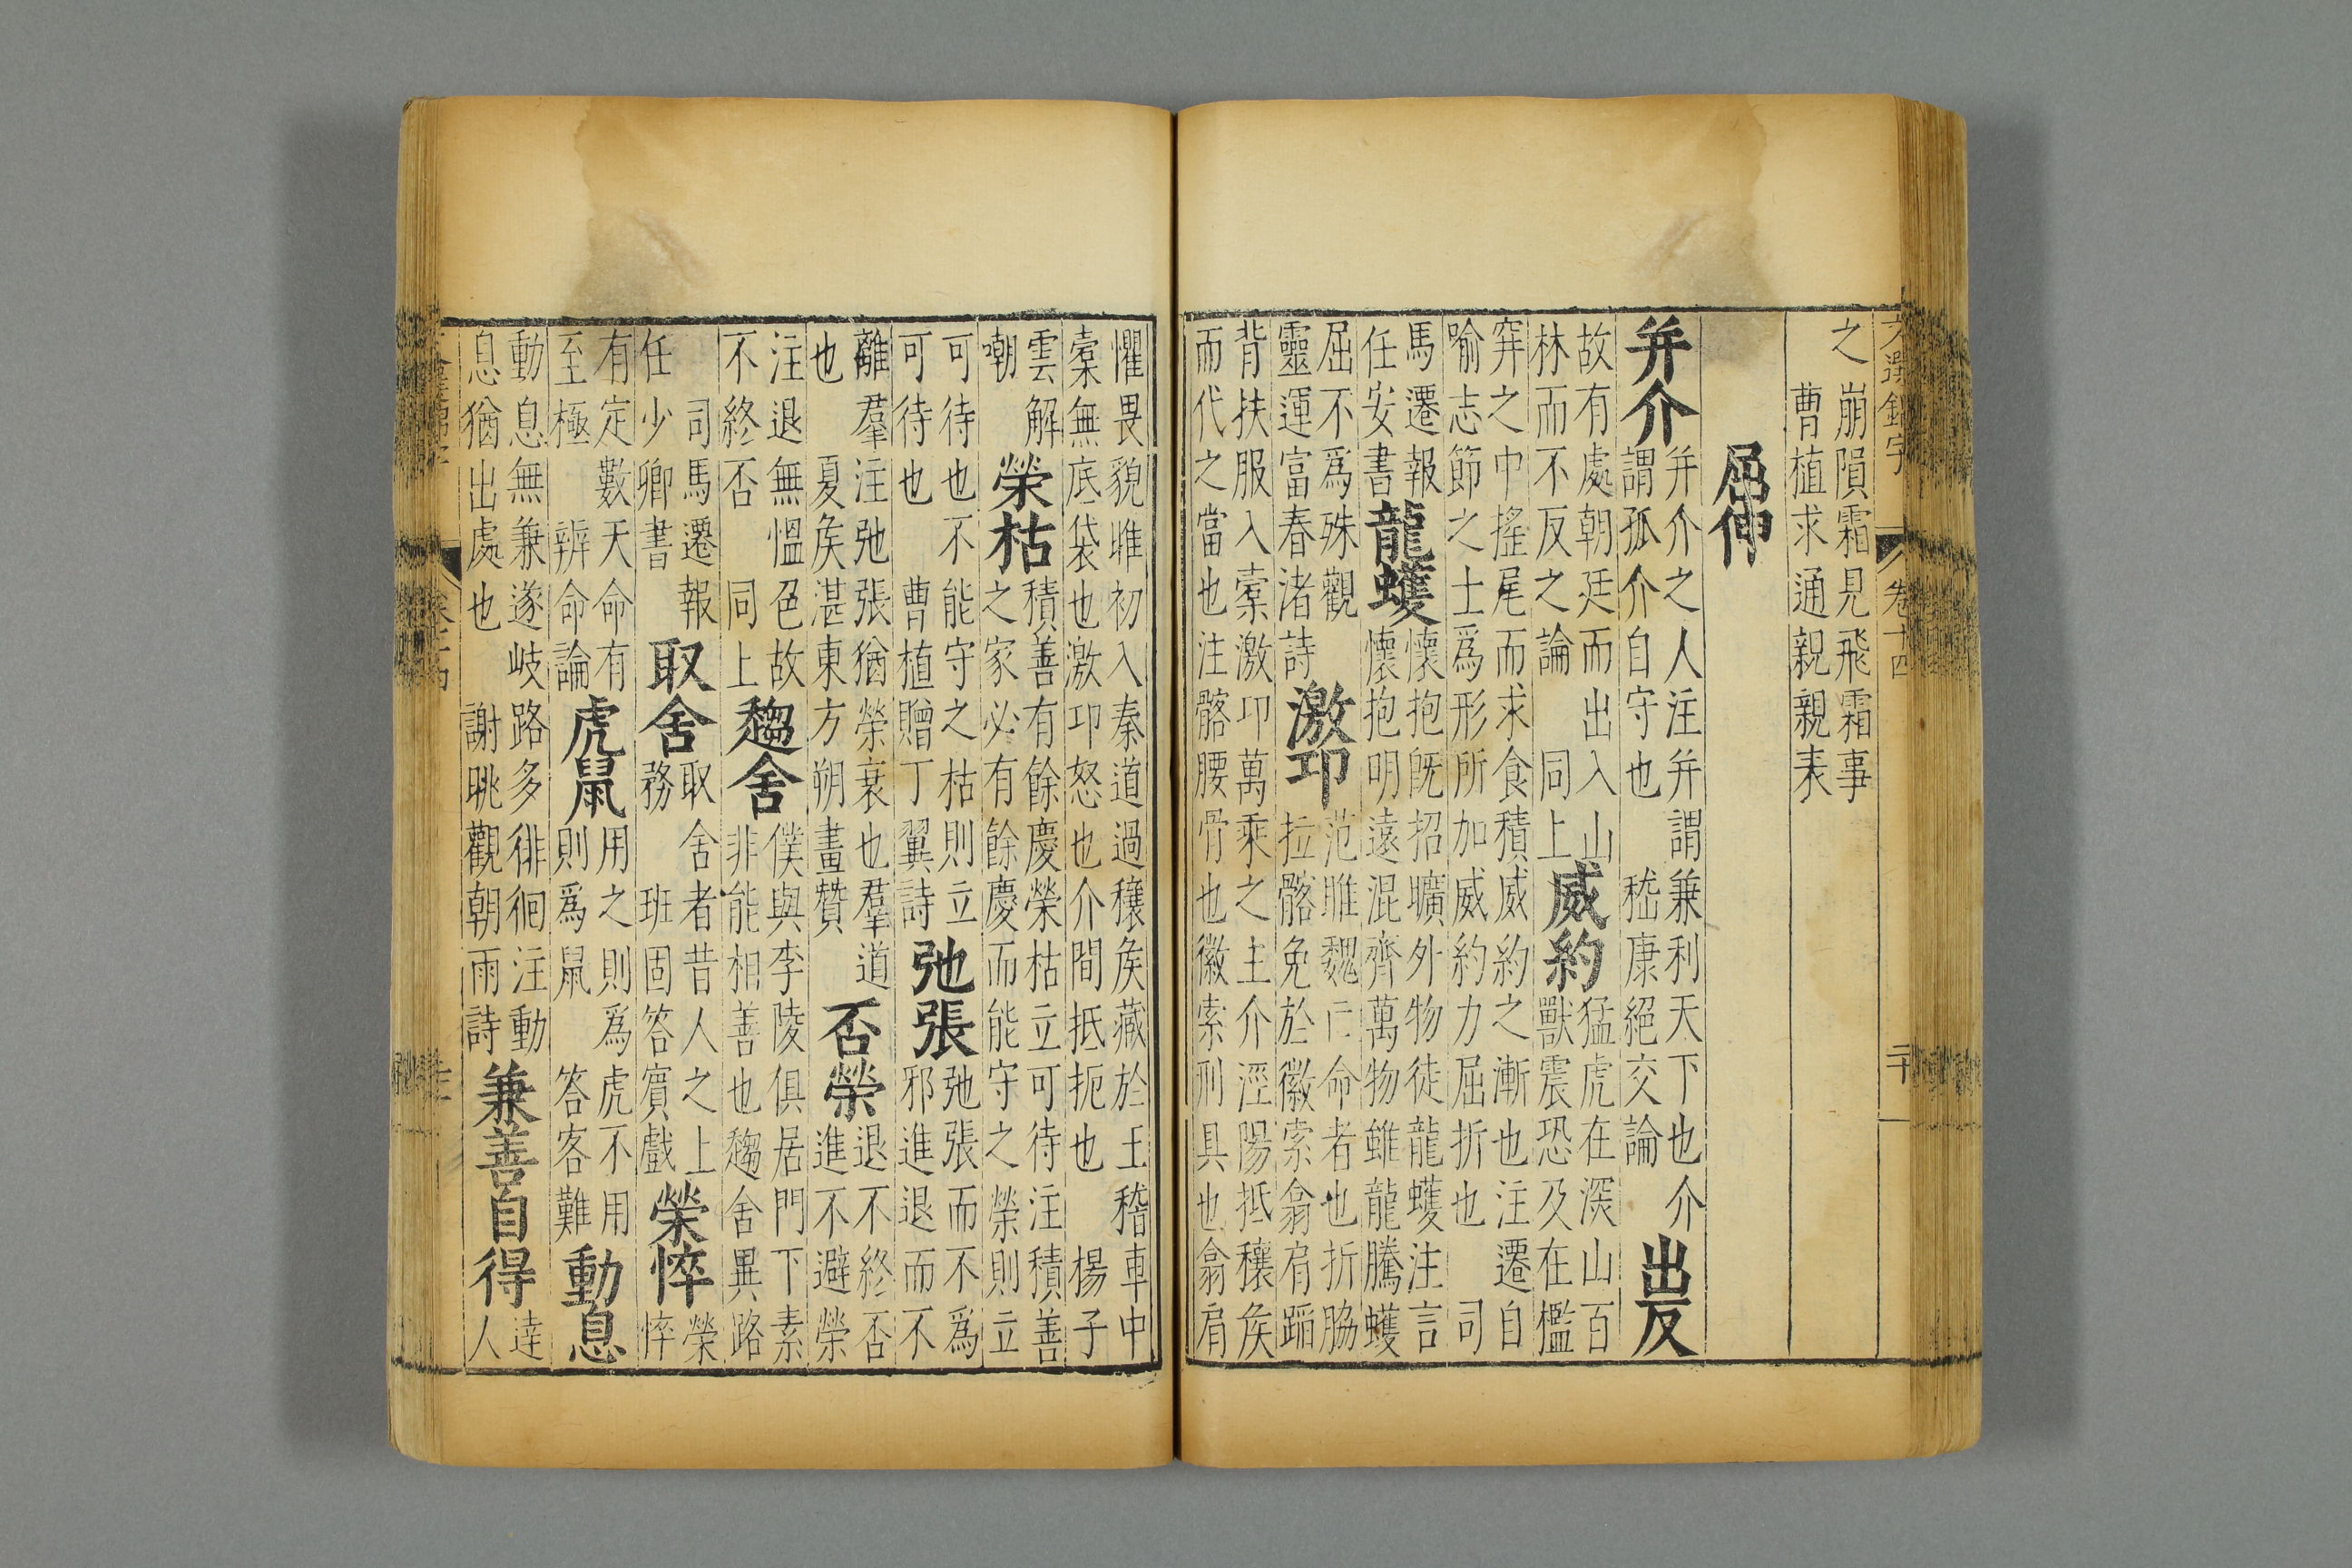 文選錦字 卷十四 二十
之崩隕霜見飛霜事
曹植求通親親表
屈伸
并介
并介之人注并謂兼利天下也介
謂孤介自守也 嵇康絕交論
出反
故有處朝廷而出入山
林而不反之論 同上
威約
猛虎在深山百
獸震恐及在檻
穽之中搖尾而求食積威約之漸也注遷自
喻志節之士爲形所加威約力屈折也 司
馬遷報
任安書
龍蠖
懷抱既招曠外物徒龍蠖注言
懷抱明遠混齊萬物雖龍騰蠖
屈不爲殊觀
靈運富春渚詩
激卬
范雎魏亡命者也折脇
拉髂免於徽索翕肩蹈
背扶服入橐激卬萬乘之主介涇陽抵穰侯
而代之當也注髂腰骨也徽索刑具也翕肩
懼畏貌雎初入秦道過穰侯藏於王稽車中
橐無底袋也激卬怒也介間抵扼也 楊子
雲解
嘲
榮枯
積善有餘慶榮枯立可待注積善
之家必有餘慶而能守之榮則立
可待也不能守之枯則立
可待也 曹植贈丁翼詩
弛張
弛張而不爲
邪進退而不
離羣注弛張猶榮衰也羣道
也 夏侯湛東方朔畫贊
否榮
退不終否
進不避榮
注退無慍色故
不終否 同上
趨舍
僕與李陵俱居門下素
非能相善也趨舍異路
司馬遷報
任少卿書
取舍
取舍者昔人之上
務 班固答賓戲
榮悴
榮
悴
有定數天命有
至極 辨命論
虎鼠
用之則爲虎不用
則爲鼠 答客難
動息
動息無兼遂岐路多徘徊注動
息猶出處也 謝眺觀朝雨詩
兼善自得
達
人